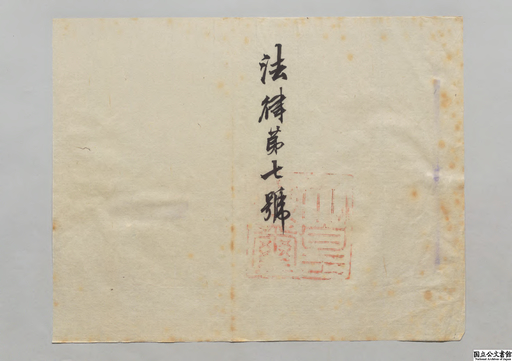 法律第七號
国立公文書館
National Archives of Japan